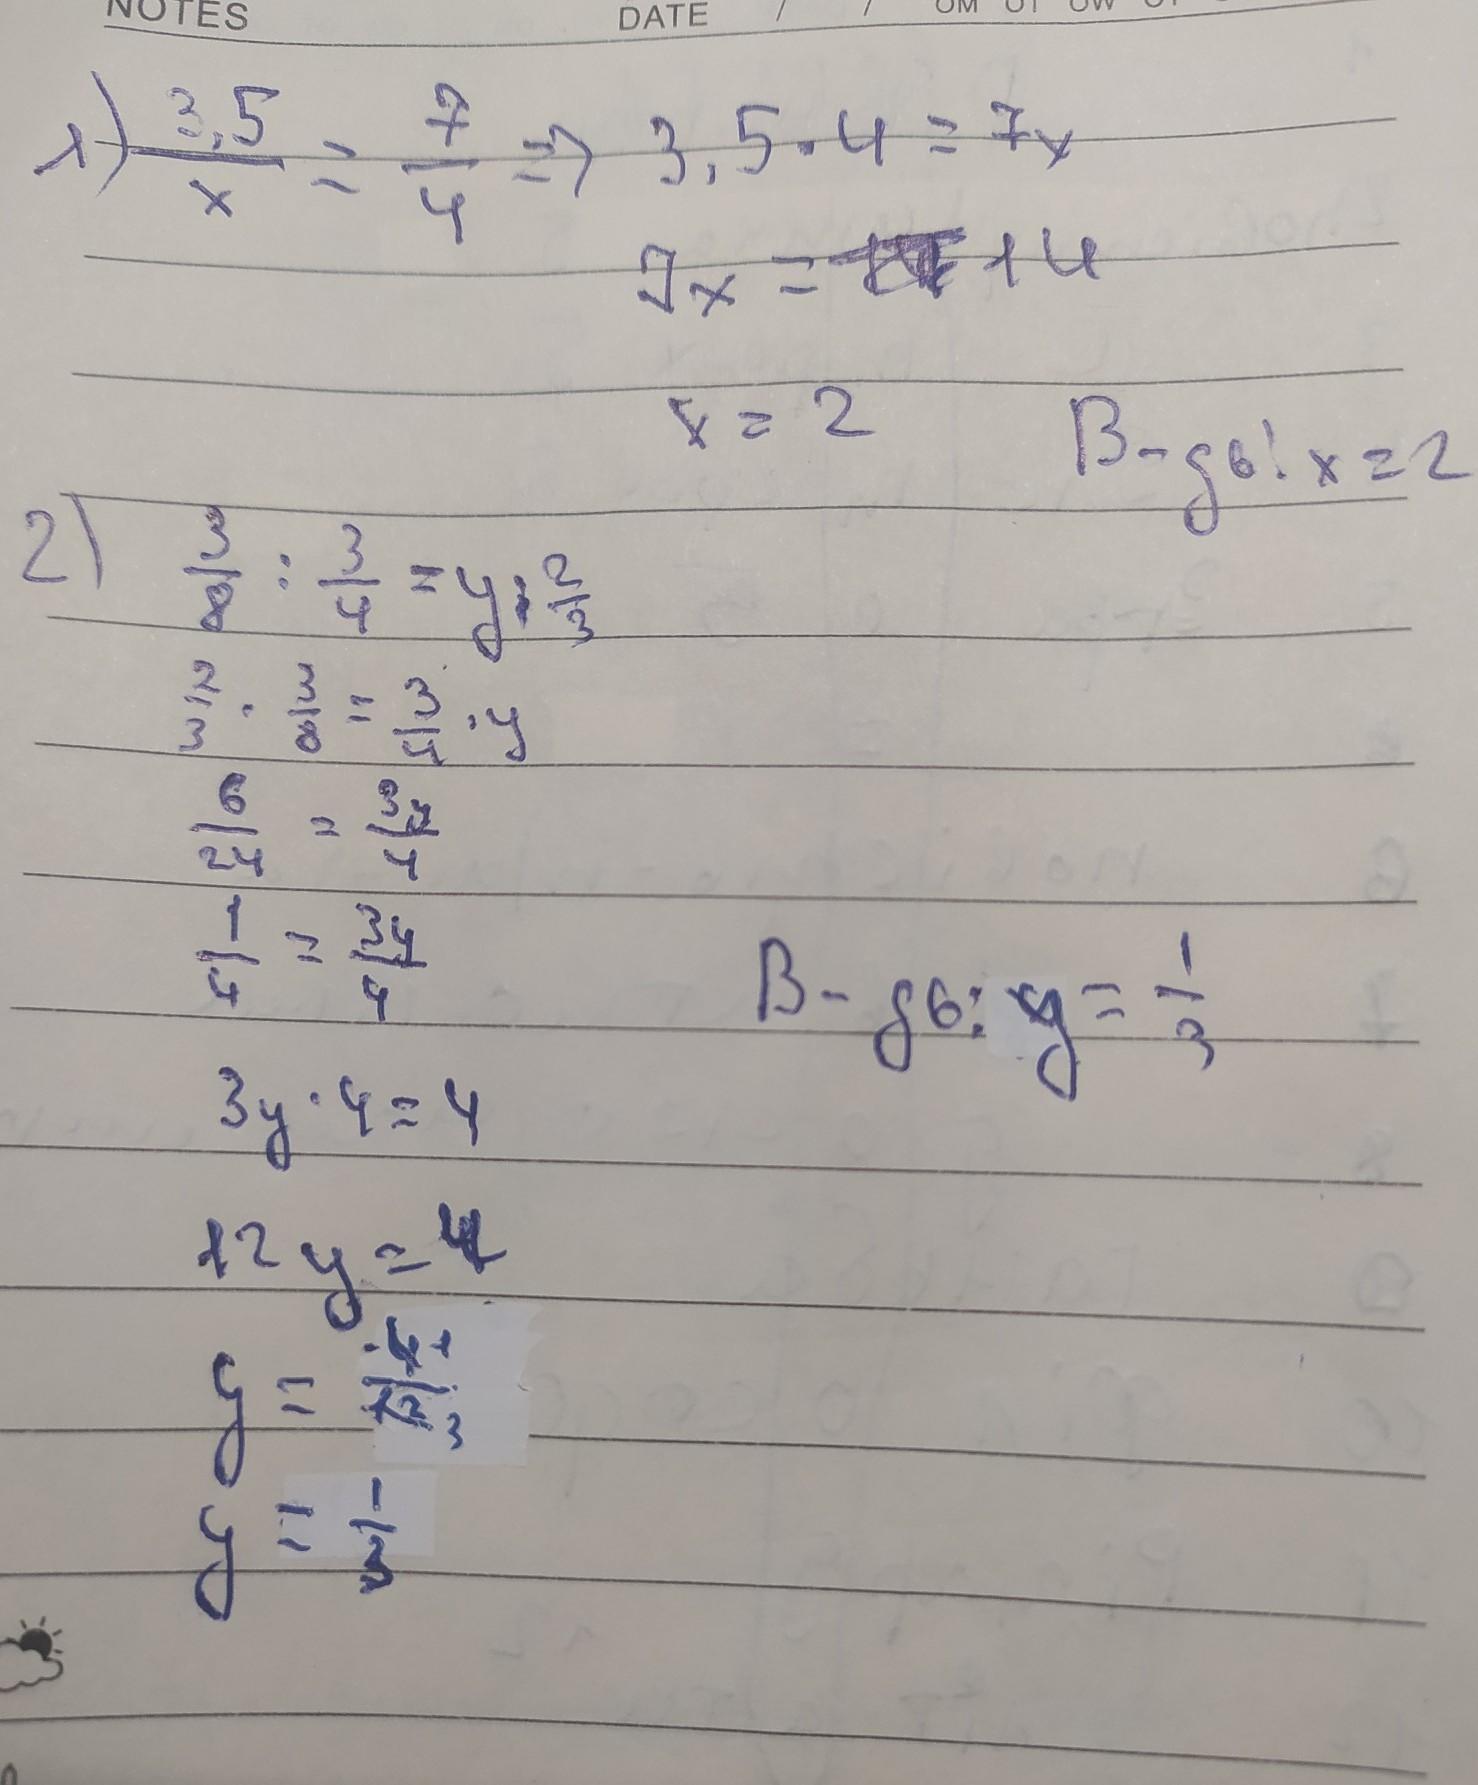 NOTES DATE / /
1) 3,5/x = 7/4 => 3,5 · 4 = 7x
7x = 14
x = 2
В-дь: x = 2
2) 3/8 : 3/4 = y : 2/3
2/3 · 3/8 = 3/4 · y
6/24 = 3y/4
1/4 = 3y/4
В-дь: y = 1/3
3y · 4 = 4
12y = 4
y = 4 1/12 3
y = 1/3